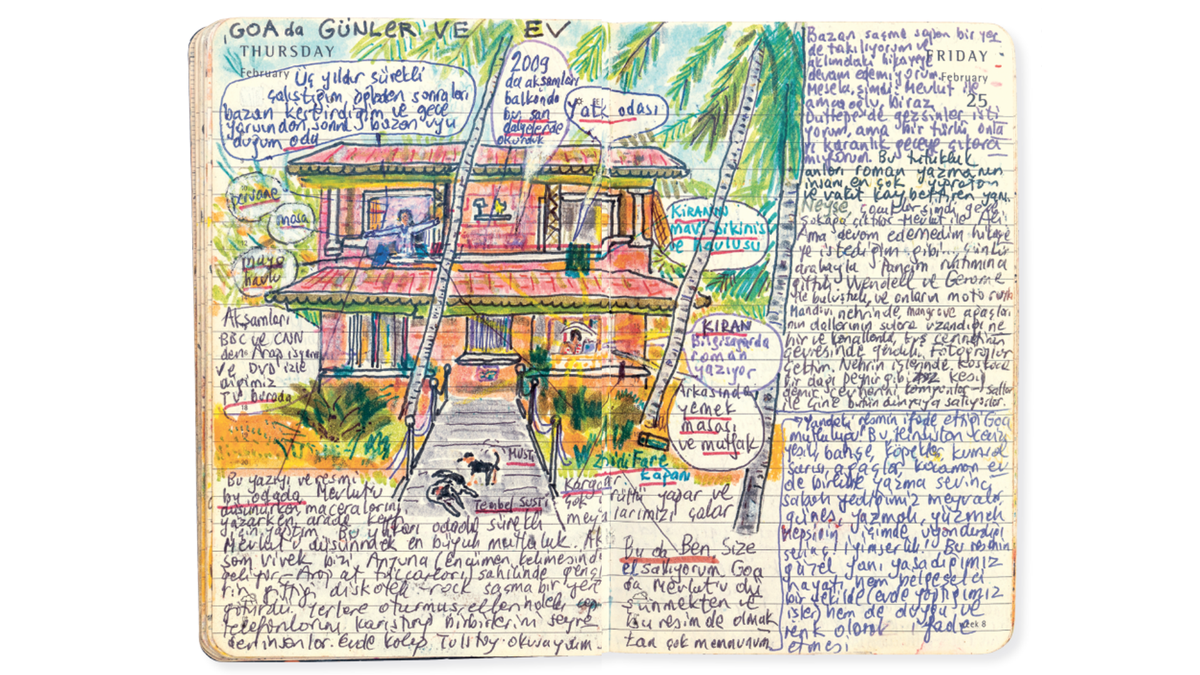 GOA da GÜNLER VE EV
THURSDAY
February
Üç yıldır sürekli
çalıştığım öğleden sonraları
bazan kestirdiğim ve gece
yarısından sonra bazan uyu
duğum oda
2009
da akşamları
balkonda
bu sarı
okurduk
yatk odası
pervane
masa
mayo
havlu
KİRANIN
mavi bikinisi
ve havlusu
Akşamları
BBC ve CNN
den Arap isyanı
ve DVD izle
diğimiz
TV burada
KİRAN
Bilgisayarda
roman
yazıyor
Arkasında
yemek
masası
ve mutfak
MUSTİ
Tembel SUSTİ
Fare
kapanı
Bu yazıyı ve resmi
bu odada, Mevlutu
düşünürken maceralarını
yazarken, arada
için yaptım. Bu odada sürekli
Mevlut'u düşünmek en büyük mutluluk. Ak
şam vivek bizi Anjuna kelimesinden
geliyor sahilinde genç
diskotek rock saçma bir yer
götürdü. Yerlere oturmuş
telefonlarını karıştırıp birbirlerini seyre
den insanlar. Evde kalıp Tolstoy okusaydım.
Karga
çok yapar ve
larımızı çalar
Bu da Ben Size
el sallıyorum Goa
da Mevlut'u dü
şünmekten ve
bu resimde olmak
tan çok memnunum
FRIDAY
February
25
Bazan saçma sapan bir yer
de takılıyorum ve
aklımdaki hikayeye
devam edemiyorum.
Mesela şimdi Mevlut ile
amcaoğlu biraz
Duttepe'de gezsinler isti
yorum, ama bir türlü onla
rı karanlık geceye çıkara
mıyorum. Bu
anlar roman yazmanın
insanı en çok yıpratan
ve vakit kaybettiren yanı.
Neyse
sokağa çıktılar Mevlut ile
Ama devam edemedim hikaye
ye istediğim gibi...
arabayla rıhtımına
gittik. Wendell ve Gerome
ile buluştuk, ve onların
nehrinde mangrov ağaçları
nın dallarının sulara uzandığı
hir ve kanallarda, kuş cennetinin
çevresinde gezdik. Fotoğraflar
çektim. Nehrin içlerinde
bir dağı peynir gibi kesip
demir
ile Çine bütün dünyaya satıyorlar.
Yandaki resmin ifade ettiği Goa
mutluluğu Bu
yeşil, bahçe, köpekler, kumsal
sarısı, ağaçlar, kocaman ev
de birlikte yazma sevinci
sabah yediğimiz meyvalar
güneş, yazmak, yüzmek
Hepsinin içimde uyandırdığı
sevinç! İyimserlik! Bu resmin
güzel yanı yaşadığımız
hayatı hem belgeselci
bir şekilde (evde yaptığımız
işler) hem de duygu ve
renk olarak ifade
etmesi